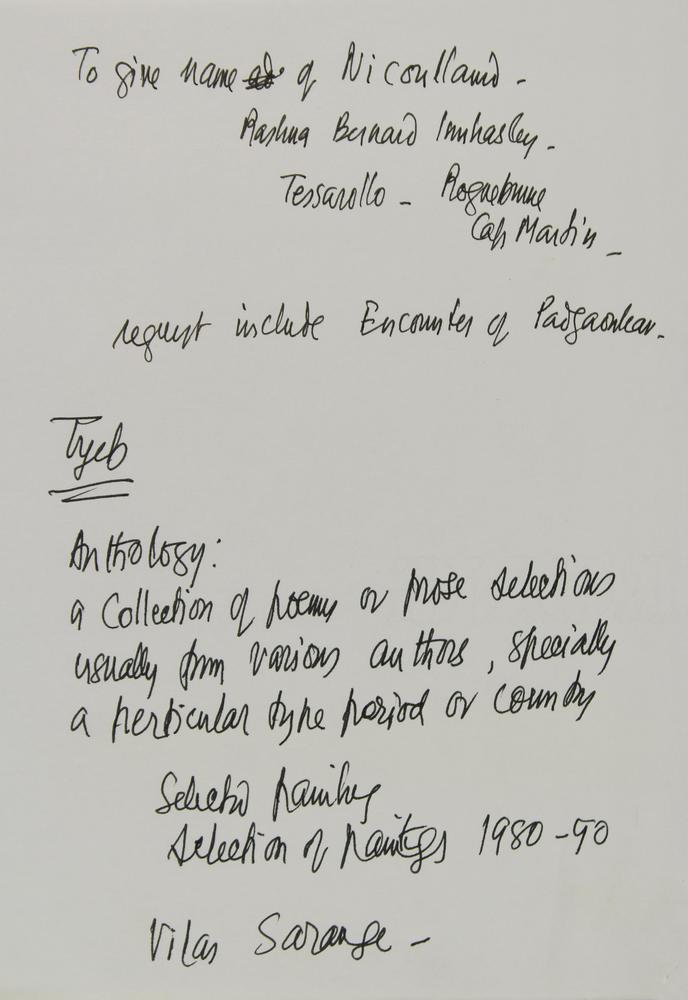 To give name of Nicoulland -
Rashna Bernard Imhasley -
Tessarollo - Roguebrune
Cap Martin -
request include Encounter of Padgaonkar.
Tyeb
Anthology:
a Collection of poems or prose selections
usually from various authors, specially
a perticular type period or country
Selected paintings
selection of paintings 1980-90
Vilas Sarange -